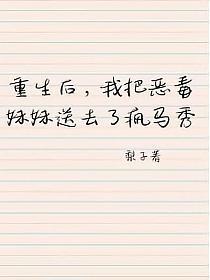 重生后，我把恶毒
妹妹送去了疯马秀
梨子著